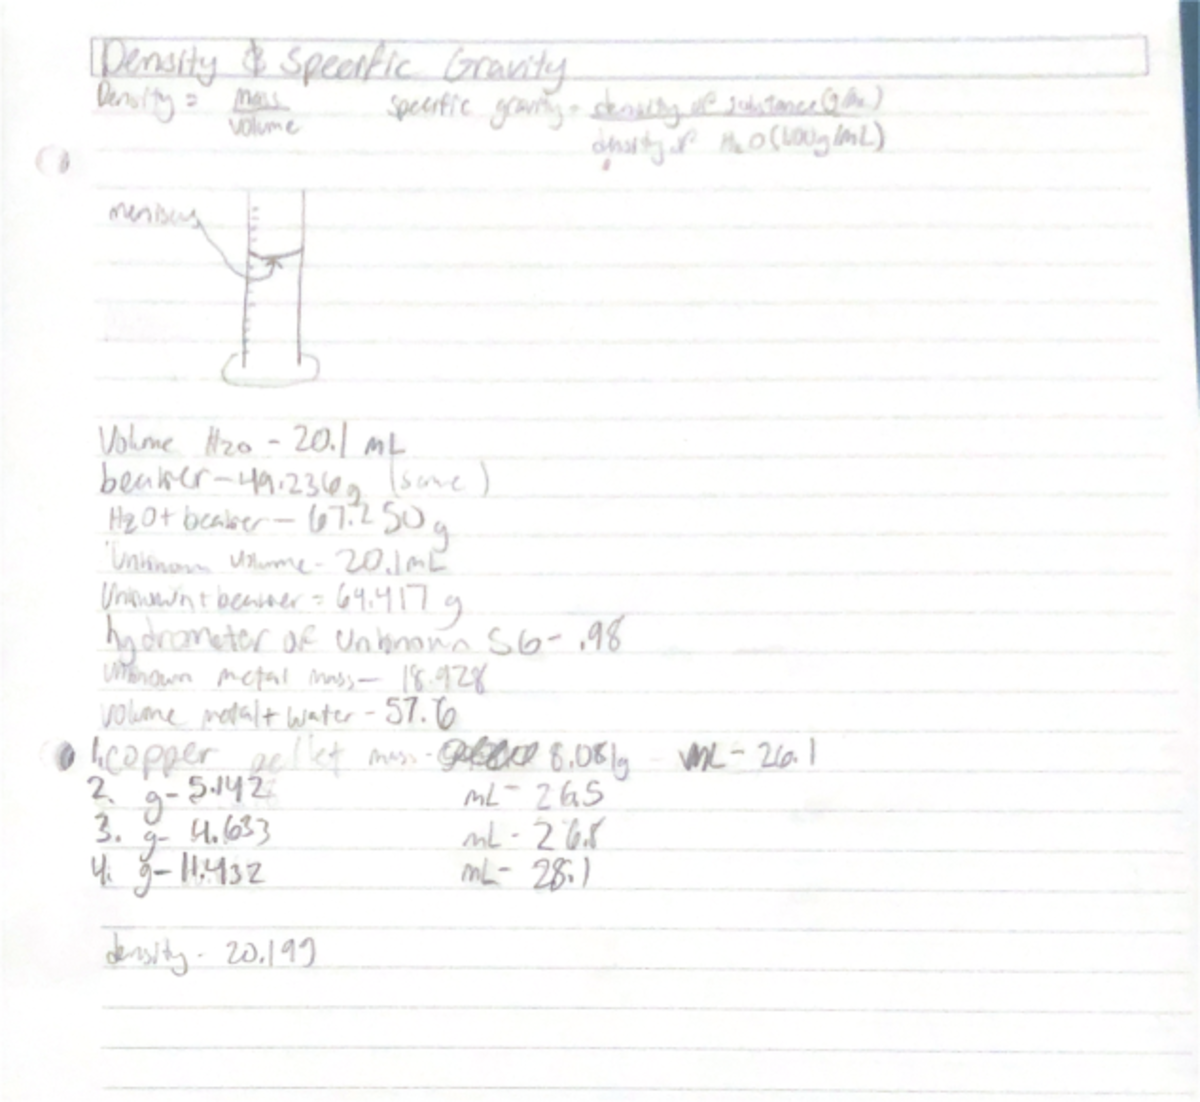 Density & Specific Gravity
Density = mass / volume specific gravity = density of substance (g/mL) / density of H2O (1.00g/mL)
meniscus
Volume H2O - 20.1 mL
beaker - 49.236g (same)
H2O + beaker - 67.250 g
Unknown volume - 20.1mL
Unknown + beaker = 64.417 g
hydrometer of Unknown SG - .98
unknown metal mass - 18.928
volume metal + water - 57.6
1. copper pellet mass - 8.081g - mL - 26.1
2. g - 5.142 mL - 26.5
3. g - 4.633 mL - 26.8
4. g - 11.432 mL - 28.1
density - 20.199